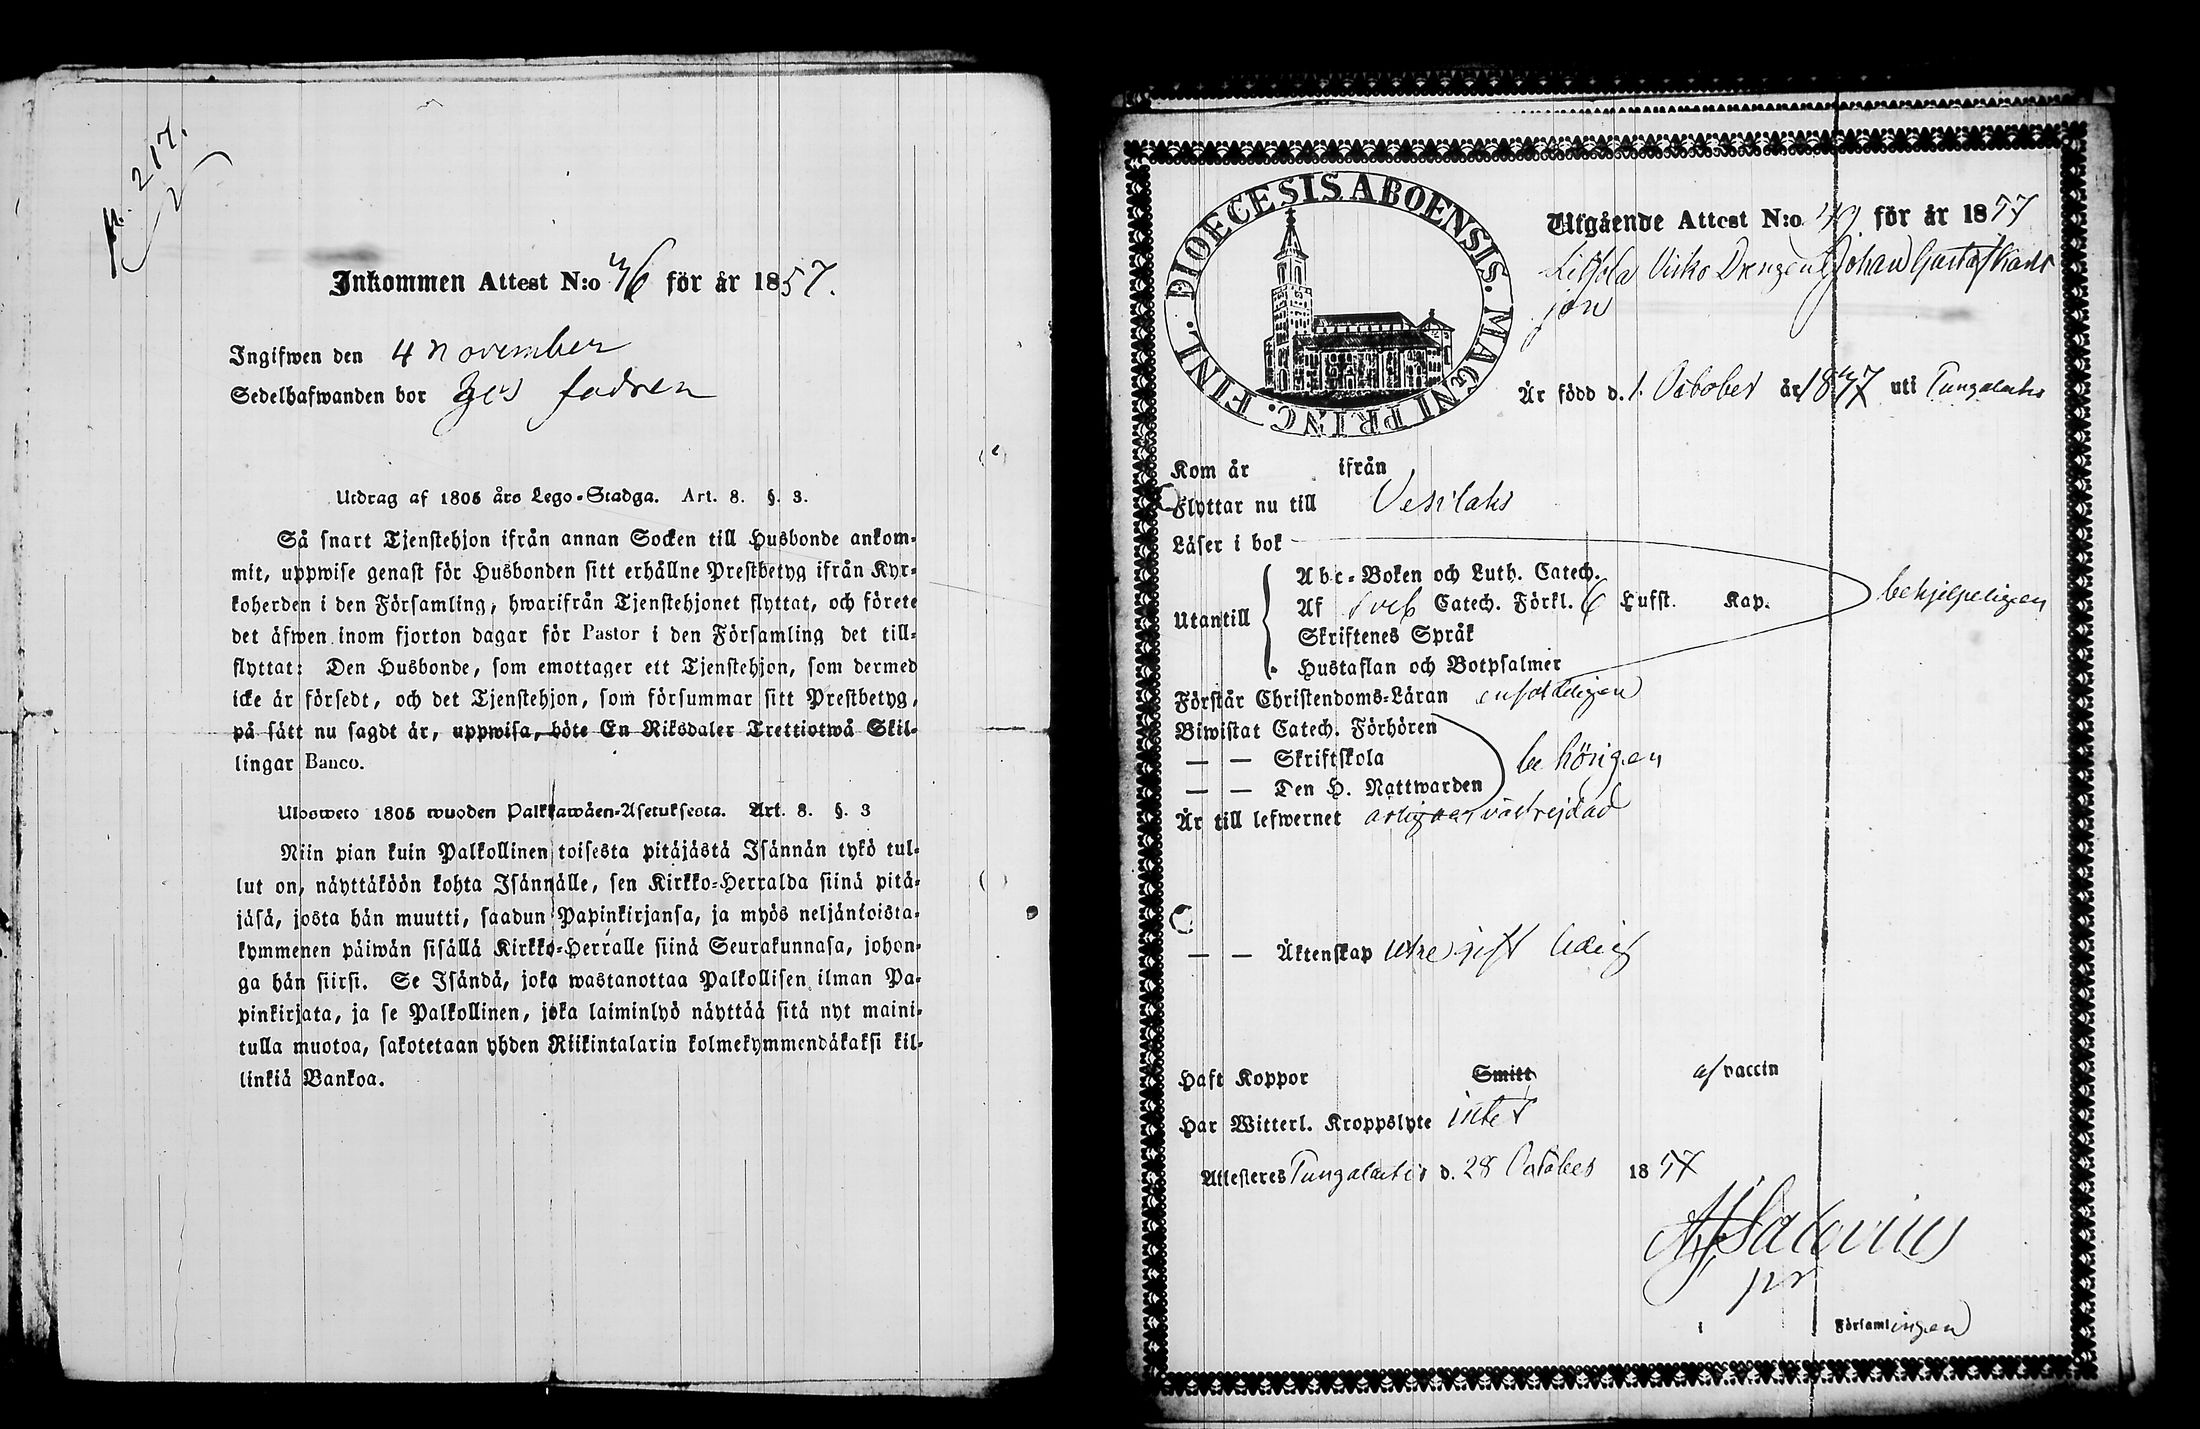 p. 217.
Inkommen Attest N:o 46 för år 1857.
Ingifwen den 4 November
Sedelhafwanden bor hos fadren
Utdrag af 1805 års Lego-Stadga. Art. 8. §. 3.
Så snart Tjenstehjon ifrån annan Socken till Husbonde ankom-
mit, uppwise genast för Husbonden sitt erhållne Prestbetyg ifrån Kyr-
koherden i den Församling, hwarifrån Tjenstehjonet flyttat, och förete
det äfwen inom fjorton dagar för Pastor i den Församling det till-
flyttat: Den Husbonde, som emottager ett Tjenstehjon, som dermed
icke är försedt, och det Tjenstehjon, som försummar sitt Prestbetyg,
på sätt nu sagdt är, uppwisa, böte En Riksdaler Trettiotwå Skil-
lingar Banco.
Ulosweto 1805 wuoden Palkkawäen-Asetuksesta. Art. 8. §. 3
Niin pian kuin Palkollinen toisesta pitäjästä Isännän tykö tul-
lut on, näyttäköön kohta Isännälle, sen Kirkko-Herralda siinä pitä-
jäsä, josta hän muutti, saadun Papinkirjansa, ja myös neljäntoista-
kymmenen päiwän sisällä Kirkko-Herralle siinä Seurakunnasa, johon-
ga hän siirsi. Se Isändä, joka wastanottaa Palkollisen ilman Pa-
pinkirjata, ja se Palkollinen, joka laiminlyö näyttää sitä nyt maini-
tulla muotoa, sakotetaan yhden Riikintalarin kolmekymmendäkaksi kil-
linkiä Bankoa.
DIOECESIS ABOENSIS. MAGNI PRINC. FINL.
Utgående Attest N:o 49 för år 1857
Drengen Johan Gustaf Karls
son
Är född d. 1. October år 1837 uti Pungalaitio
Kom år ifrån
Flyttar nu till Vesilaks
Läser i bok
Utantill
Abc-Boken och Luth. Catech.
Af Sveb Catech. Förkl. 6 Hufst. Kap.
Skriftenes Språk
Hustaflan och Botpsalmer
behjelpeligen
Förstår Christendoms-Läran enfaldeligen
Biwistat Catech. Förhören
— — Skriftskola
— — Den H. Nattwarden
behörigen
Är till lefwernet
— — Äktenskap ledig
Haft Koppor Smitt af vaccin
Har Witterl. Kroppslyte intet
Attesteres Pungalaitio d. 28 October 1857
i Församlingen